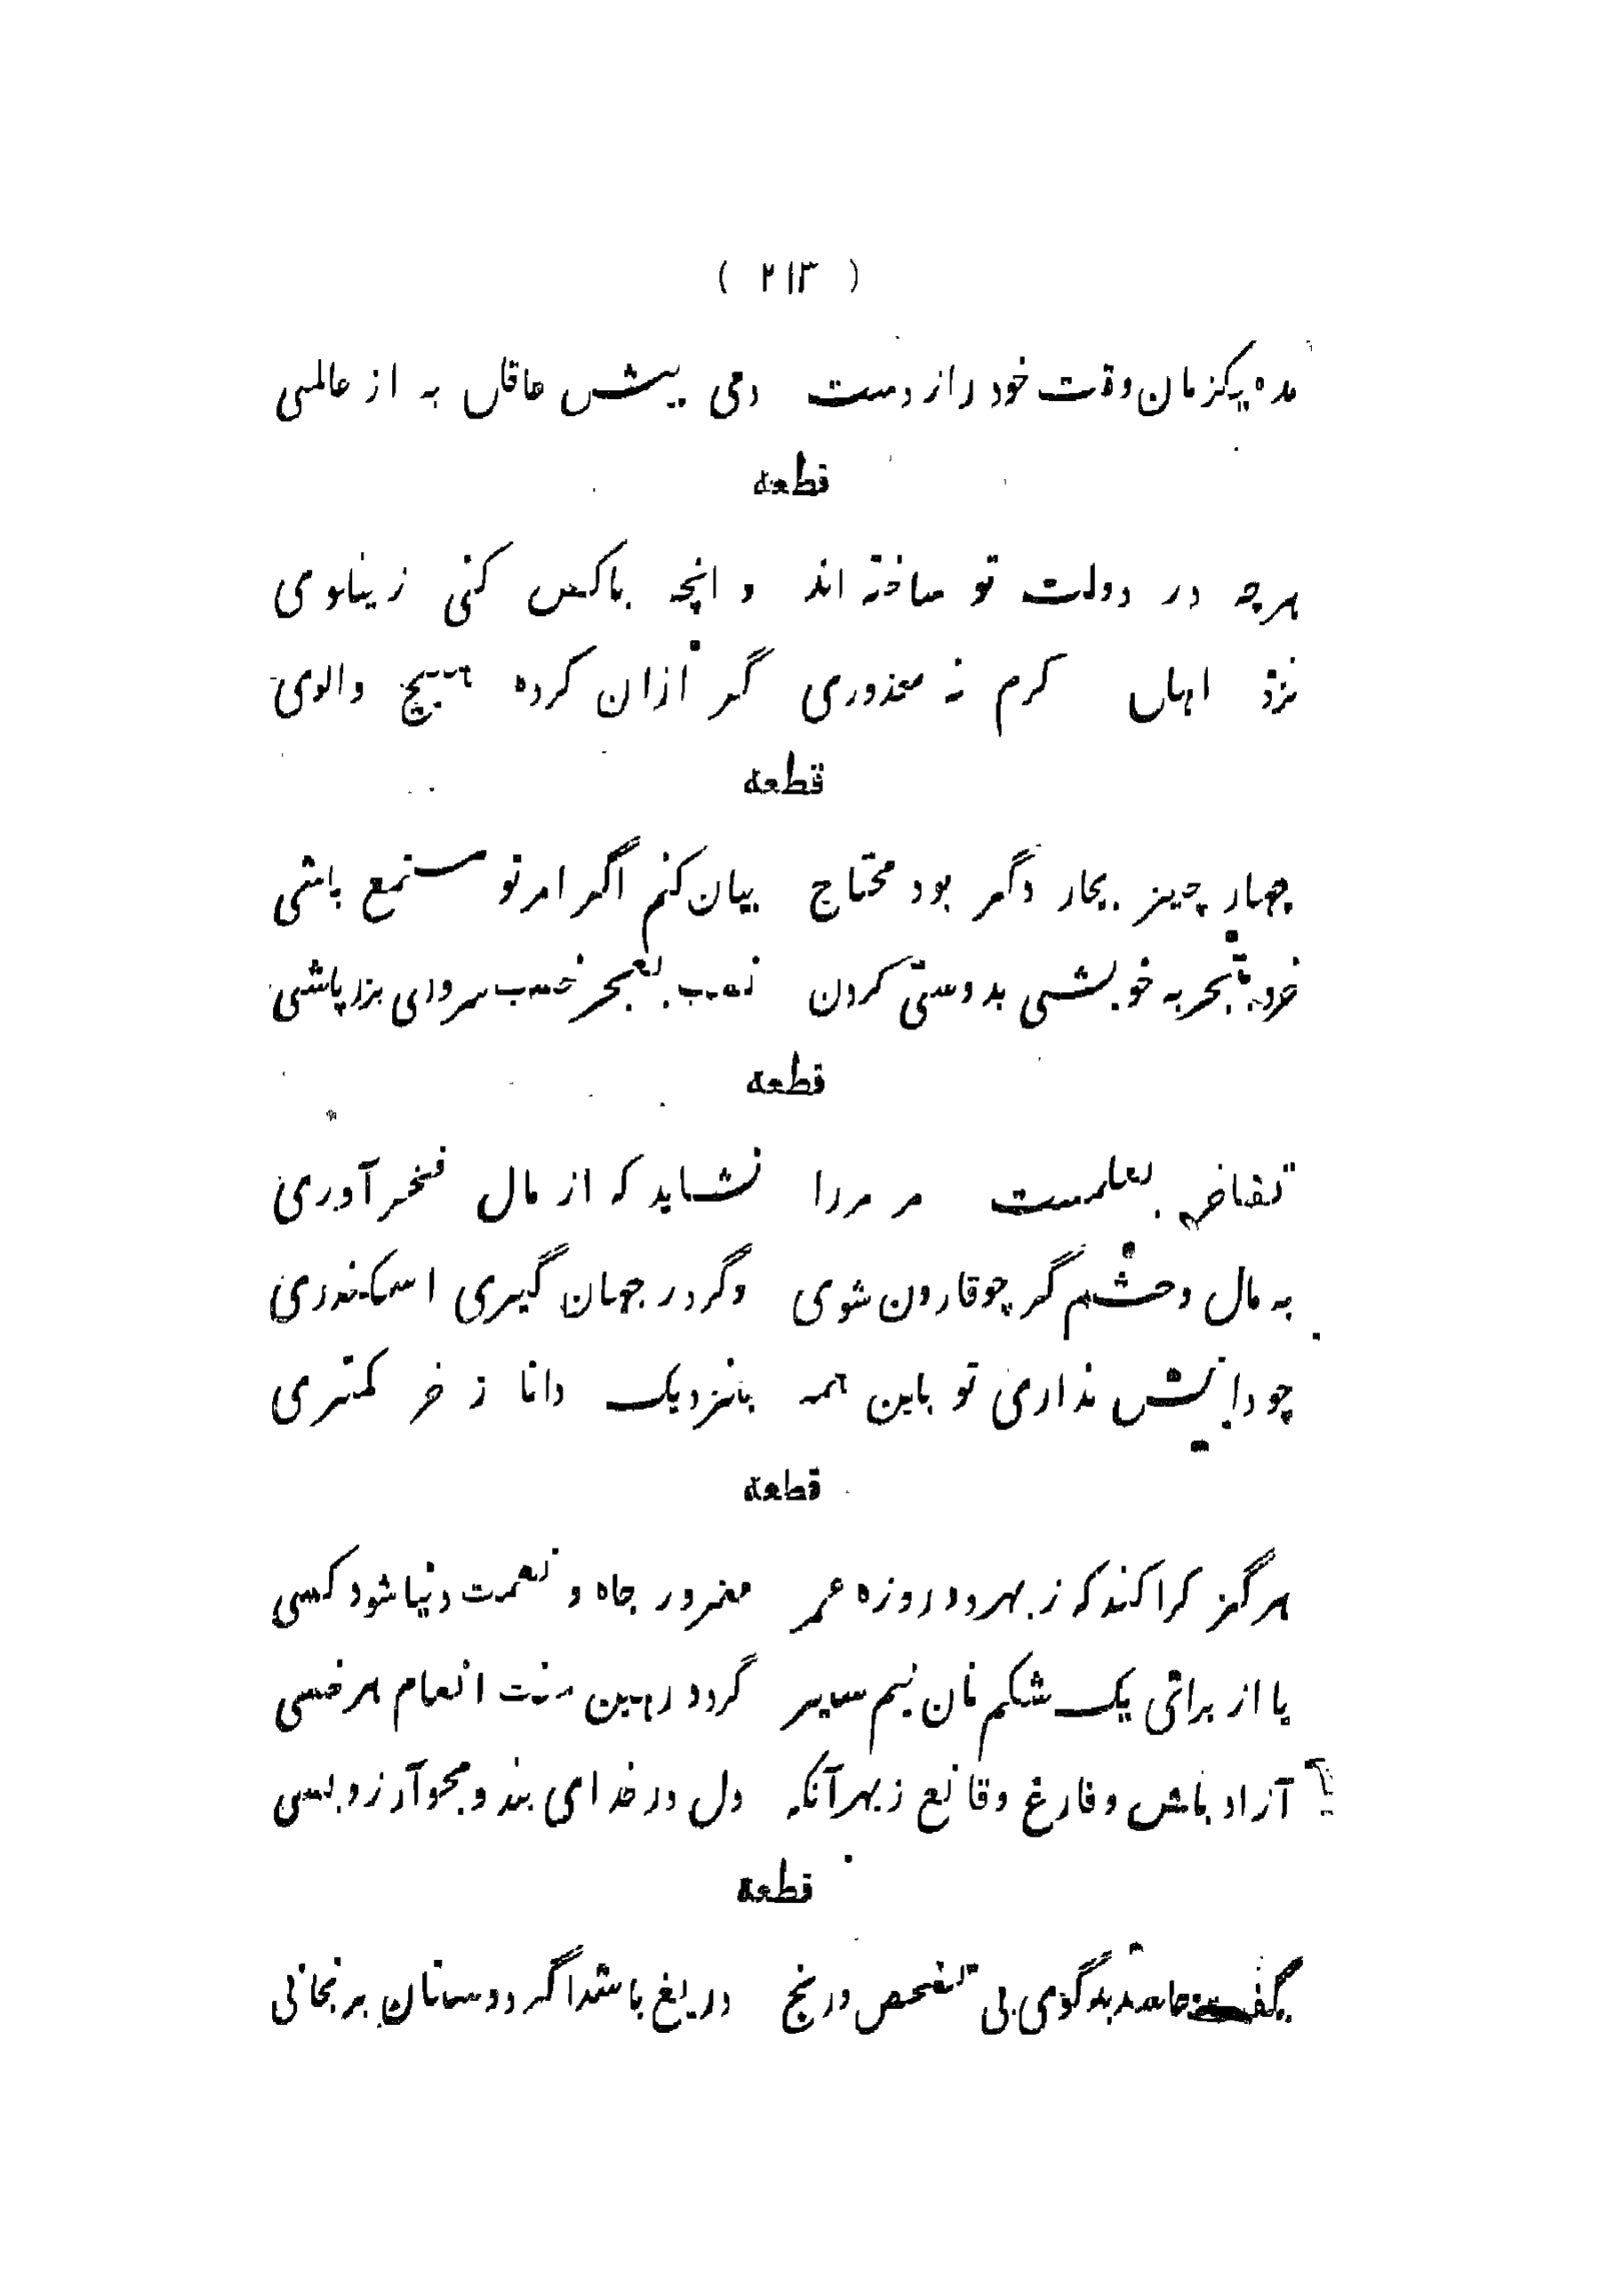 ( ۲۱۳ )
مده یکزمان وقت خود را از دست دمی پیش عاقل به از عالمی
قطعه
هرچه در دولت تو ساخته اند و انچه باکس کنی ز ینکوی
نزد اهل کرم نه معذوری گر ازان کرده هیچ والوی
قطعه
چهار چیز بچار دگر بود محتاج بیان کنم اگر امر تو مستمع باشی
خرد بتجربه خویشی بدوستی کردن نسب بفخر حسب سروری بزر پاشی
قطعه
تفاخر بعلمست مر مرد را نشاید که از مال فخر آوری
به مال و حشم گر چو قارون شوی وگر در جهان گیری اسکندری
چو دانش نداری تو باین همه بنزدیک دانا ز خر کمتری
قطعه
هرگز کرا کند که ز بهر دو روزه عمر مغرور جاه و نعمت دنیا شود کسی
یا از برائی یک شکم نان نیم سیر گردد رهین منت انعام هر خسی
آزاد باش و فارغ و قانع ز بهر آنکه دل در خدای بند و مجو آرزو بسی
قطعه
بگفت حاسد بدگوی بی تفحص و رنج دریغ باشد اگر دوستان برنجانی